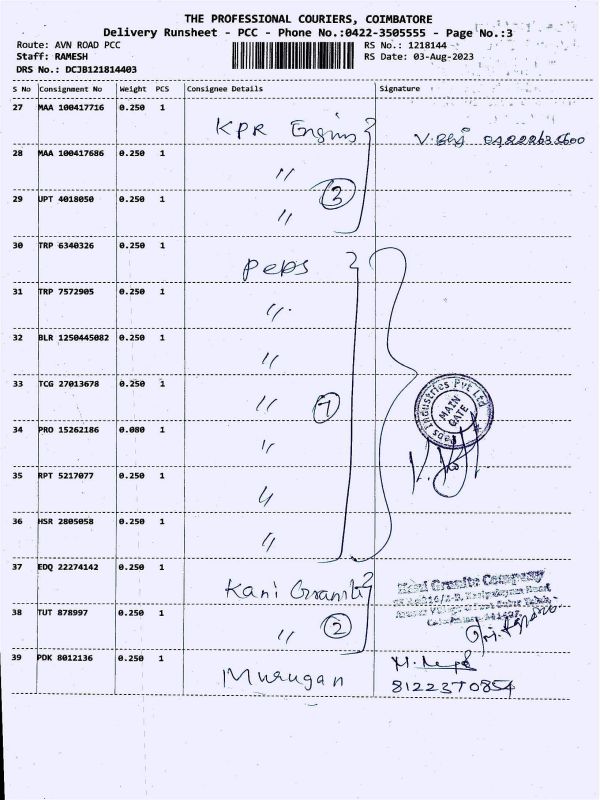 THE PROFESSIONAL COURIERS, COIMBATORE
Delivery Runsheet - PCC - Phone No.:0422-3505555 - Page No.:3
Route: AVN ROAD PCC RS No.: 1218144
Staff: RAMESH RS Date: 03-Aug-2023
DRS No.: DCJB121814403
S No Consignment No Weight PCS Consignee Details Signature
27 MAA 100417716 0.250 1 KPR Engins
28 MAA 100417686 0.250 1 〃
3
29 UPT 4018050 0.250 1 〃
30 TRP 6340326 0.250 1 Peps
31 TRP 7572905 0.250 1 〃
32 BLR 1250445082 0.250 1 〃
33 TCG 27013678 0.250 1 〃 7
Peps Industries Pvt Ltd
MAIN
GATE
34 PRO 15262186 0.080 1 〃
35 RPT 5217077 0.250 1 〃
36 HSR 2805058 0.250 1 〃
37 EDQ 22274142 0.250 1 Kani Granite
Kani Granite Company
38 TUT 878997 0.250 1 〃 2
39 PDK 8012136 0.250 1 Murugan
8122370854